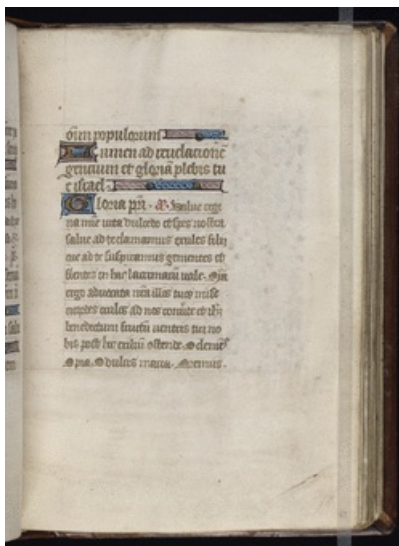 oium populorum
Lumen ad reuelacione
gencium et gloria plebis tu
e israel
Gloria pri. A. Salue regi
na mie uita dulcedo et spes nostra
salue ad te clamamus exules filii
eue ad te suspiramus gementes et
flentes in hac lacrimarum ualle. Eia
ergo aduocata nra illos tuos mise
ricordes oculos ad nos conuerte et ihm
benedictum fructu uentris tui no
bis post hoc exiliu ostende. O clemes
O pia. O dulcis maria. Oremus.